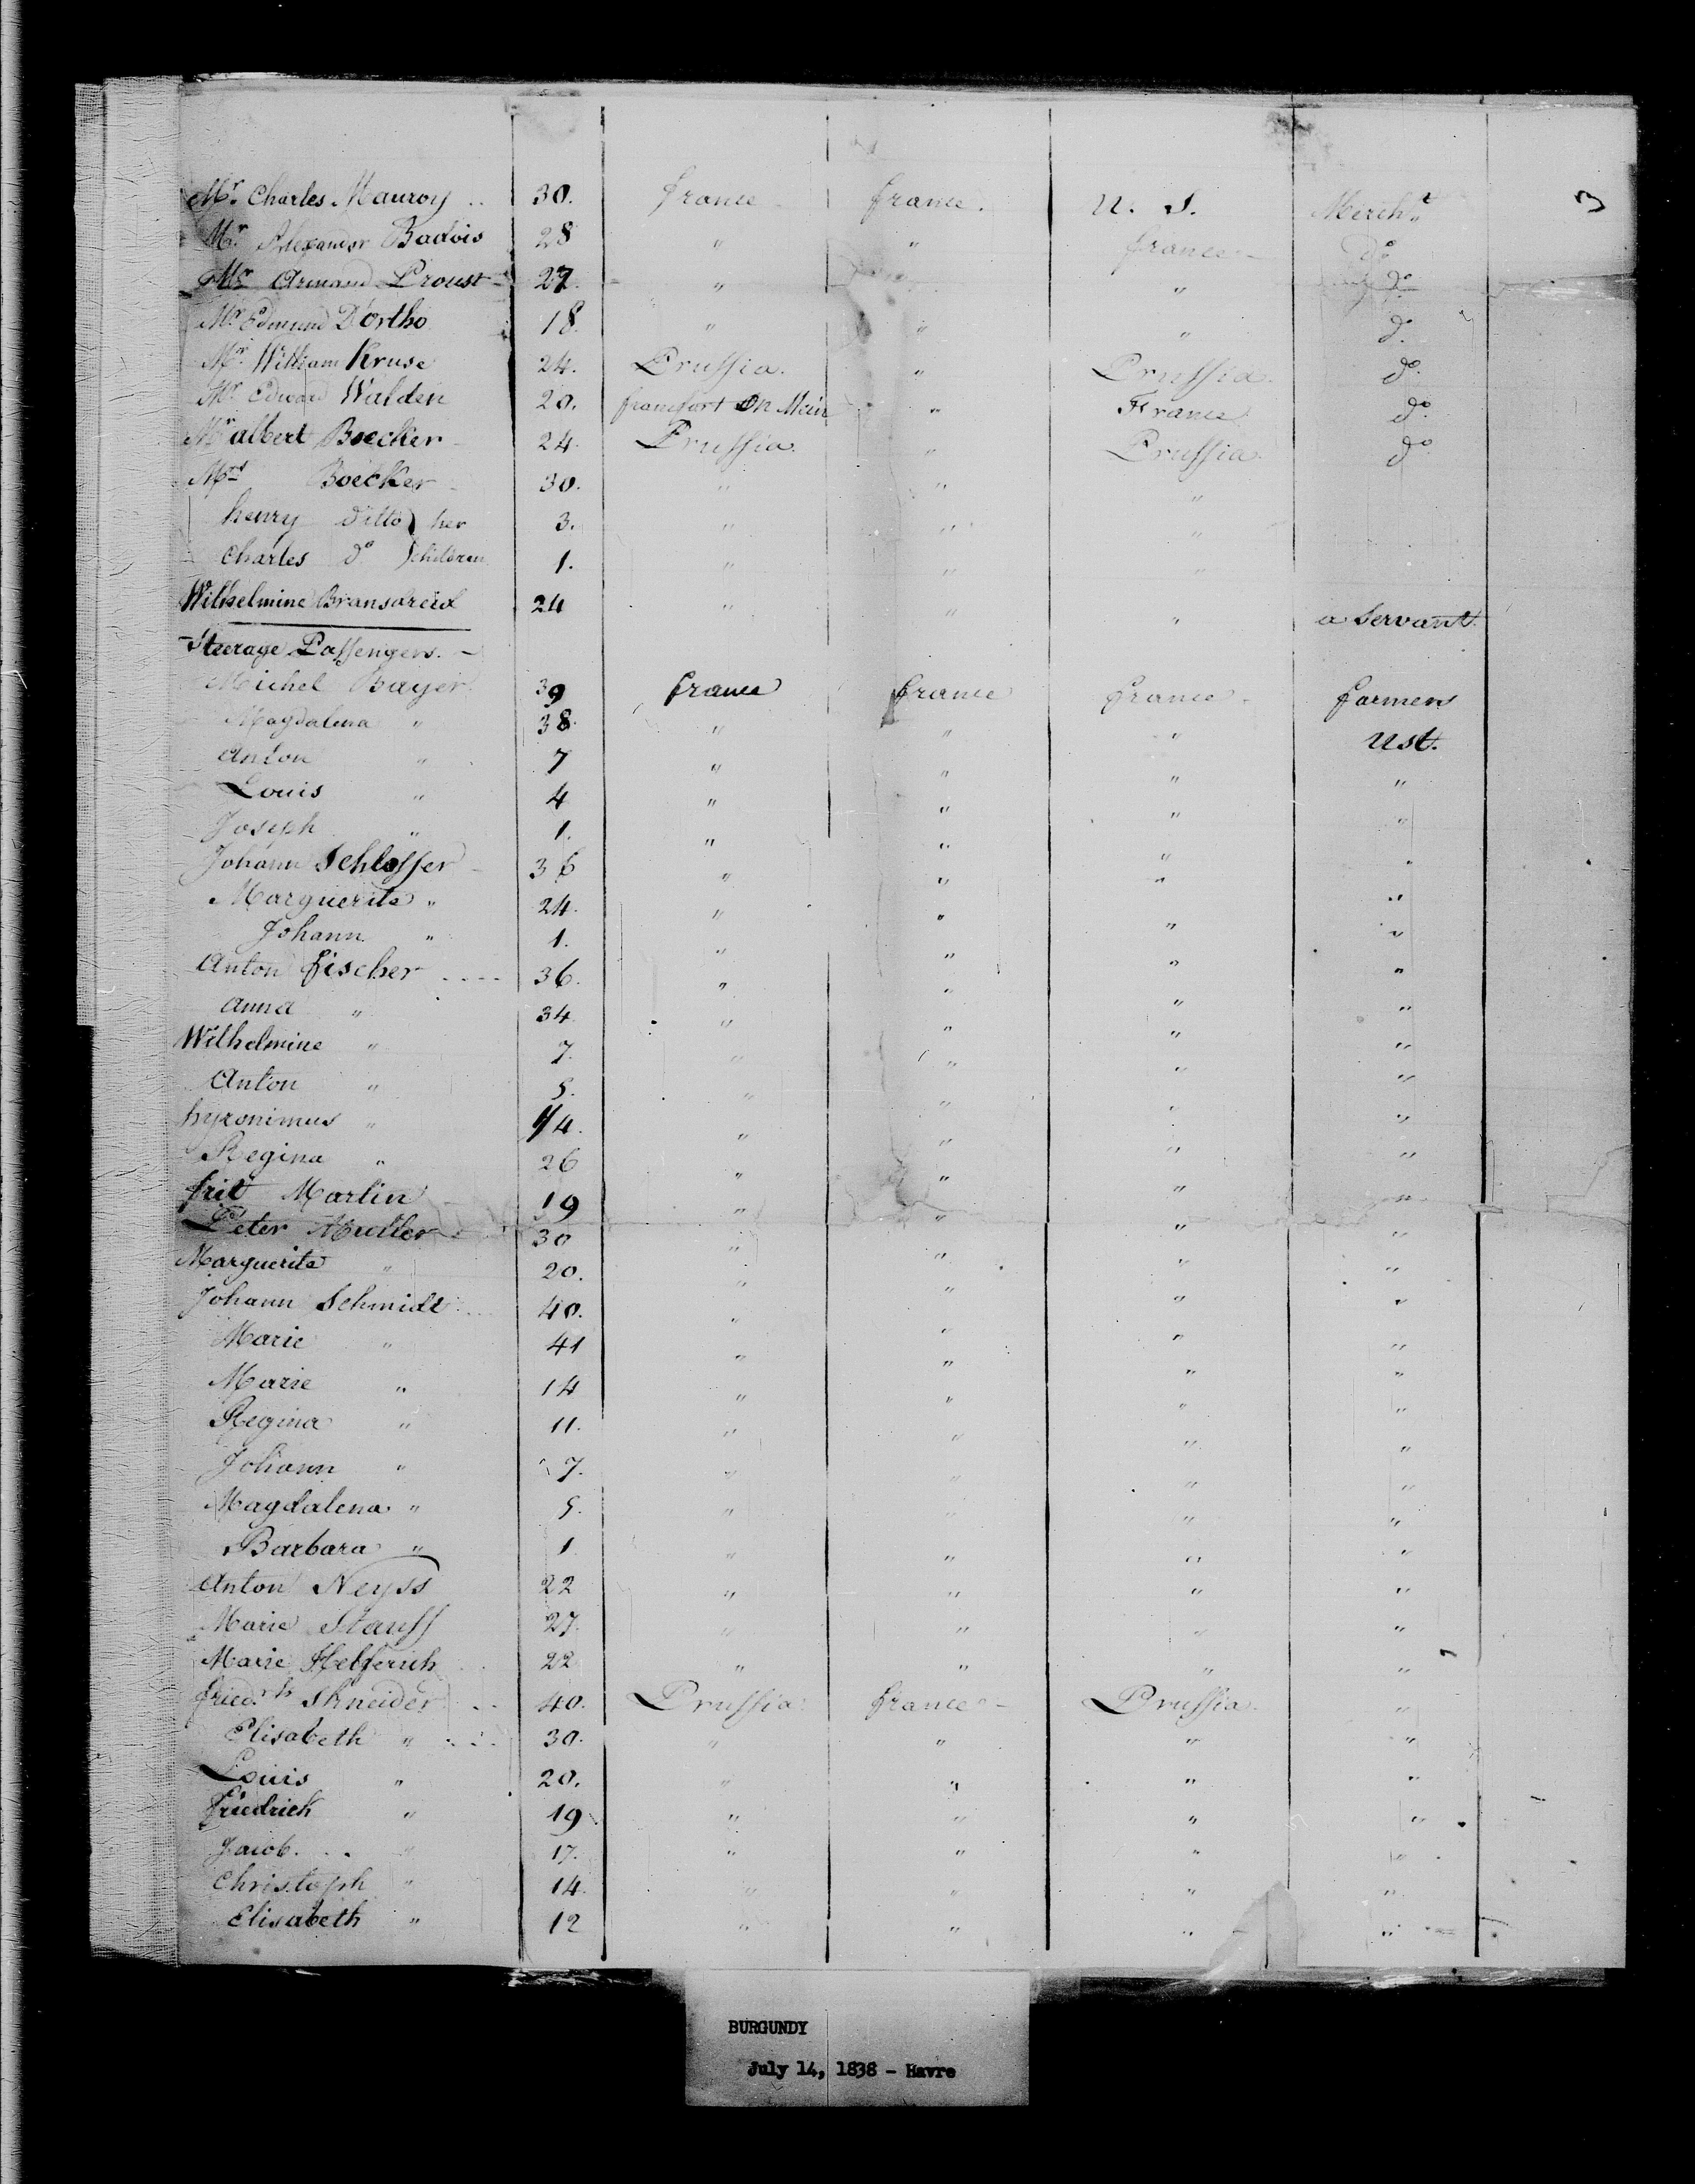 Mr. Charles Mauroy .. 30. france france. U. S. Mercht. 3
Mr Alexander Badois 28 " " france do
Mr Armand Proust 27. " " do
Mr Edmund D'ortho 18. " " " do.
Mr. William Kruse 24. Prussia. " Prussia. do.
Mr Edward Walden 20. francfort on Mein " France do.
Mr albert Boecker 24. Prussia. " Prussia do
Mrs Boecker 30. " " "
henry ditto her 3. " " "
Charles do children 1. " " "
Wilhelmine Bransdreid 24 " " " a Servant.
Steerage Passengers.
Michel Bayer 39 france france france farmers
Magdalena " 38. " " " Ust.
Anton " 7 " " " "
Louis " 4 " " " "
Joseph " 1. " " " "
Johann Schlosser 36 " " "
Marguerite " 24. " " " "
Johann " 1. " " " "
Anton fischer .... 36. " " " "
anna " 34 " " " "
Wilhelmine " 7. " " " "
Anton " 5. " " " "
hyronimus " 1/4. " " " "
Regina " 26 " " " "
frit Martin 19 " " " "
Peter Muller 30 " " " "
Marguerite " 20. " " " "
Johann Schmidt 40. " " " "
Marie " 41 " " " "
Marie " 14 " " " "
Regina " 11. " " " "
Johann " 7. " " " "
Magdalena " 5. " " " "
Barbara " 1 " " " "
Anton Neyss 22 " " " "
Marie Stauff 27. " " " "
Marie Helferich 22 " " " "
friedrh Shneider 40. Prussia france Prussia. "
Elisabeth " 30. " " " "
Louis " 20. " " " "
friedrich " 19 " " " "
Jacob. " 17. " " " "
Christoph " 14. " " " "
Elisabeth " 12 " " " "
BURGUNDY
July 14, 1838 - Havre